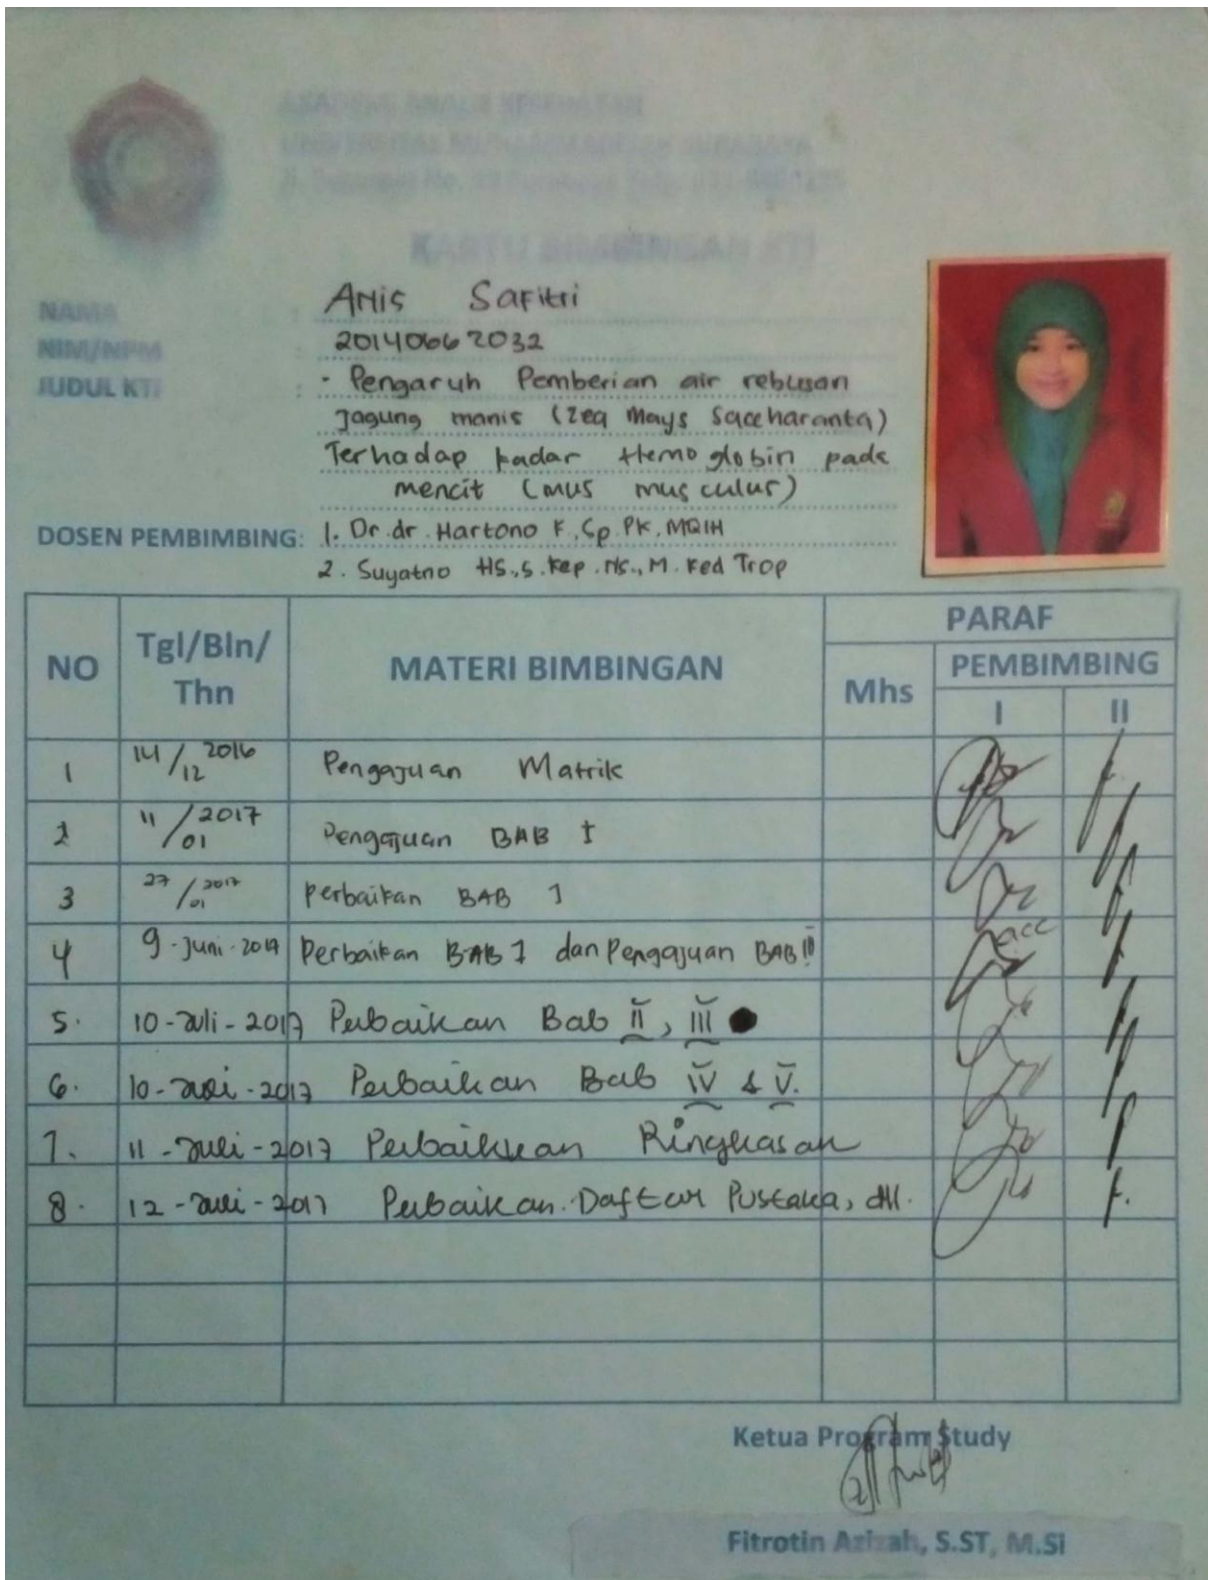 AKADEMI ANALIS KESEHATAN
UNIVERSITAS MUHAMMADIYAH SURABAYA
KARTU BIMBINGAN KTI
NAMA : Anis Safitri
NIM/NPM : 20140662032
JUDUL KTI : - Pengaruh Pemberian air rebusan
Jagung manis (Zea Mays Saccharanta)
Terhadap kadar Hemoglobin pada
mencit (mus musculus)
DOSEN PEMBIMBING: 1. Dr.dr. Hartono K, Sp.PK, MQIH
2. Suyatno HS.,S.Kep.NS., M.Ked Trop
NO Tgl/Bln/Thn MATERI BIMBINGAN PARAF
Mhs PEMBIMBING
I II
1 14/12 2016 Pengajuan Matrik
2 11/01 2017 Pengajuan BAB I
3 27/01 2017 perbaikan BAB I
4 9-Juni-2017 Perbaikan BAB I dan Pengajuan BAB II acc
5. 10-Juli-2017 Perbaikan Bab II, III
6. 10-Juli-2017 Perbaikan Bab IV & V.
7. 11-Juli-2017 Perbaikkan Ringkasan
8. 12-Juli-2017 Perbaikan Daftar Pustaka, dll.
Ketua Program Study
Fitrotin Azizah, S.ST, M.Si